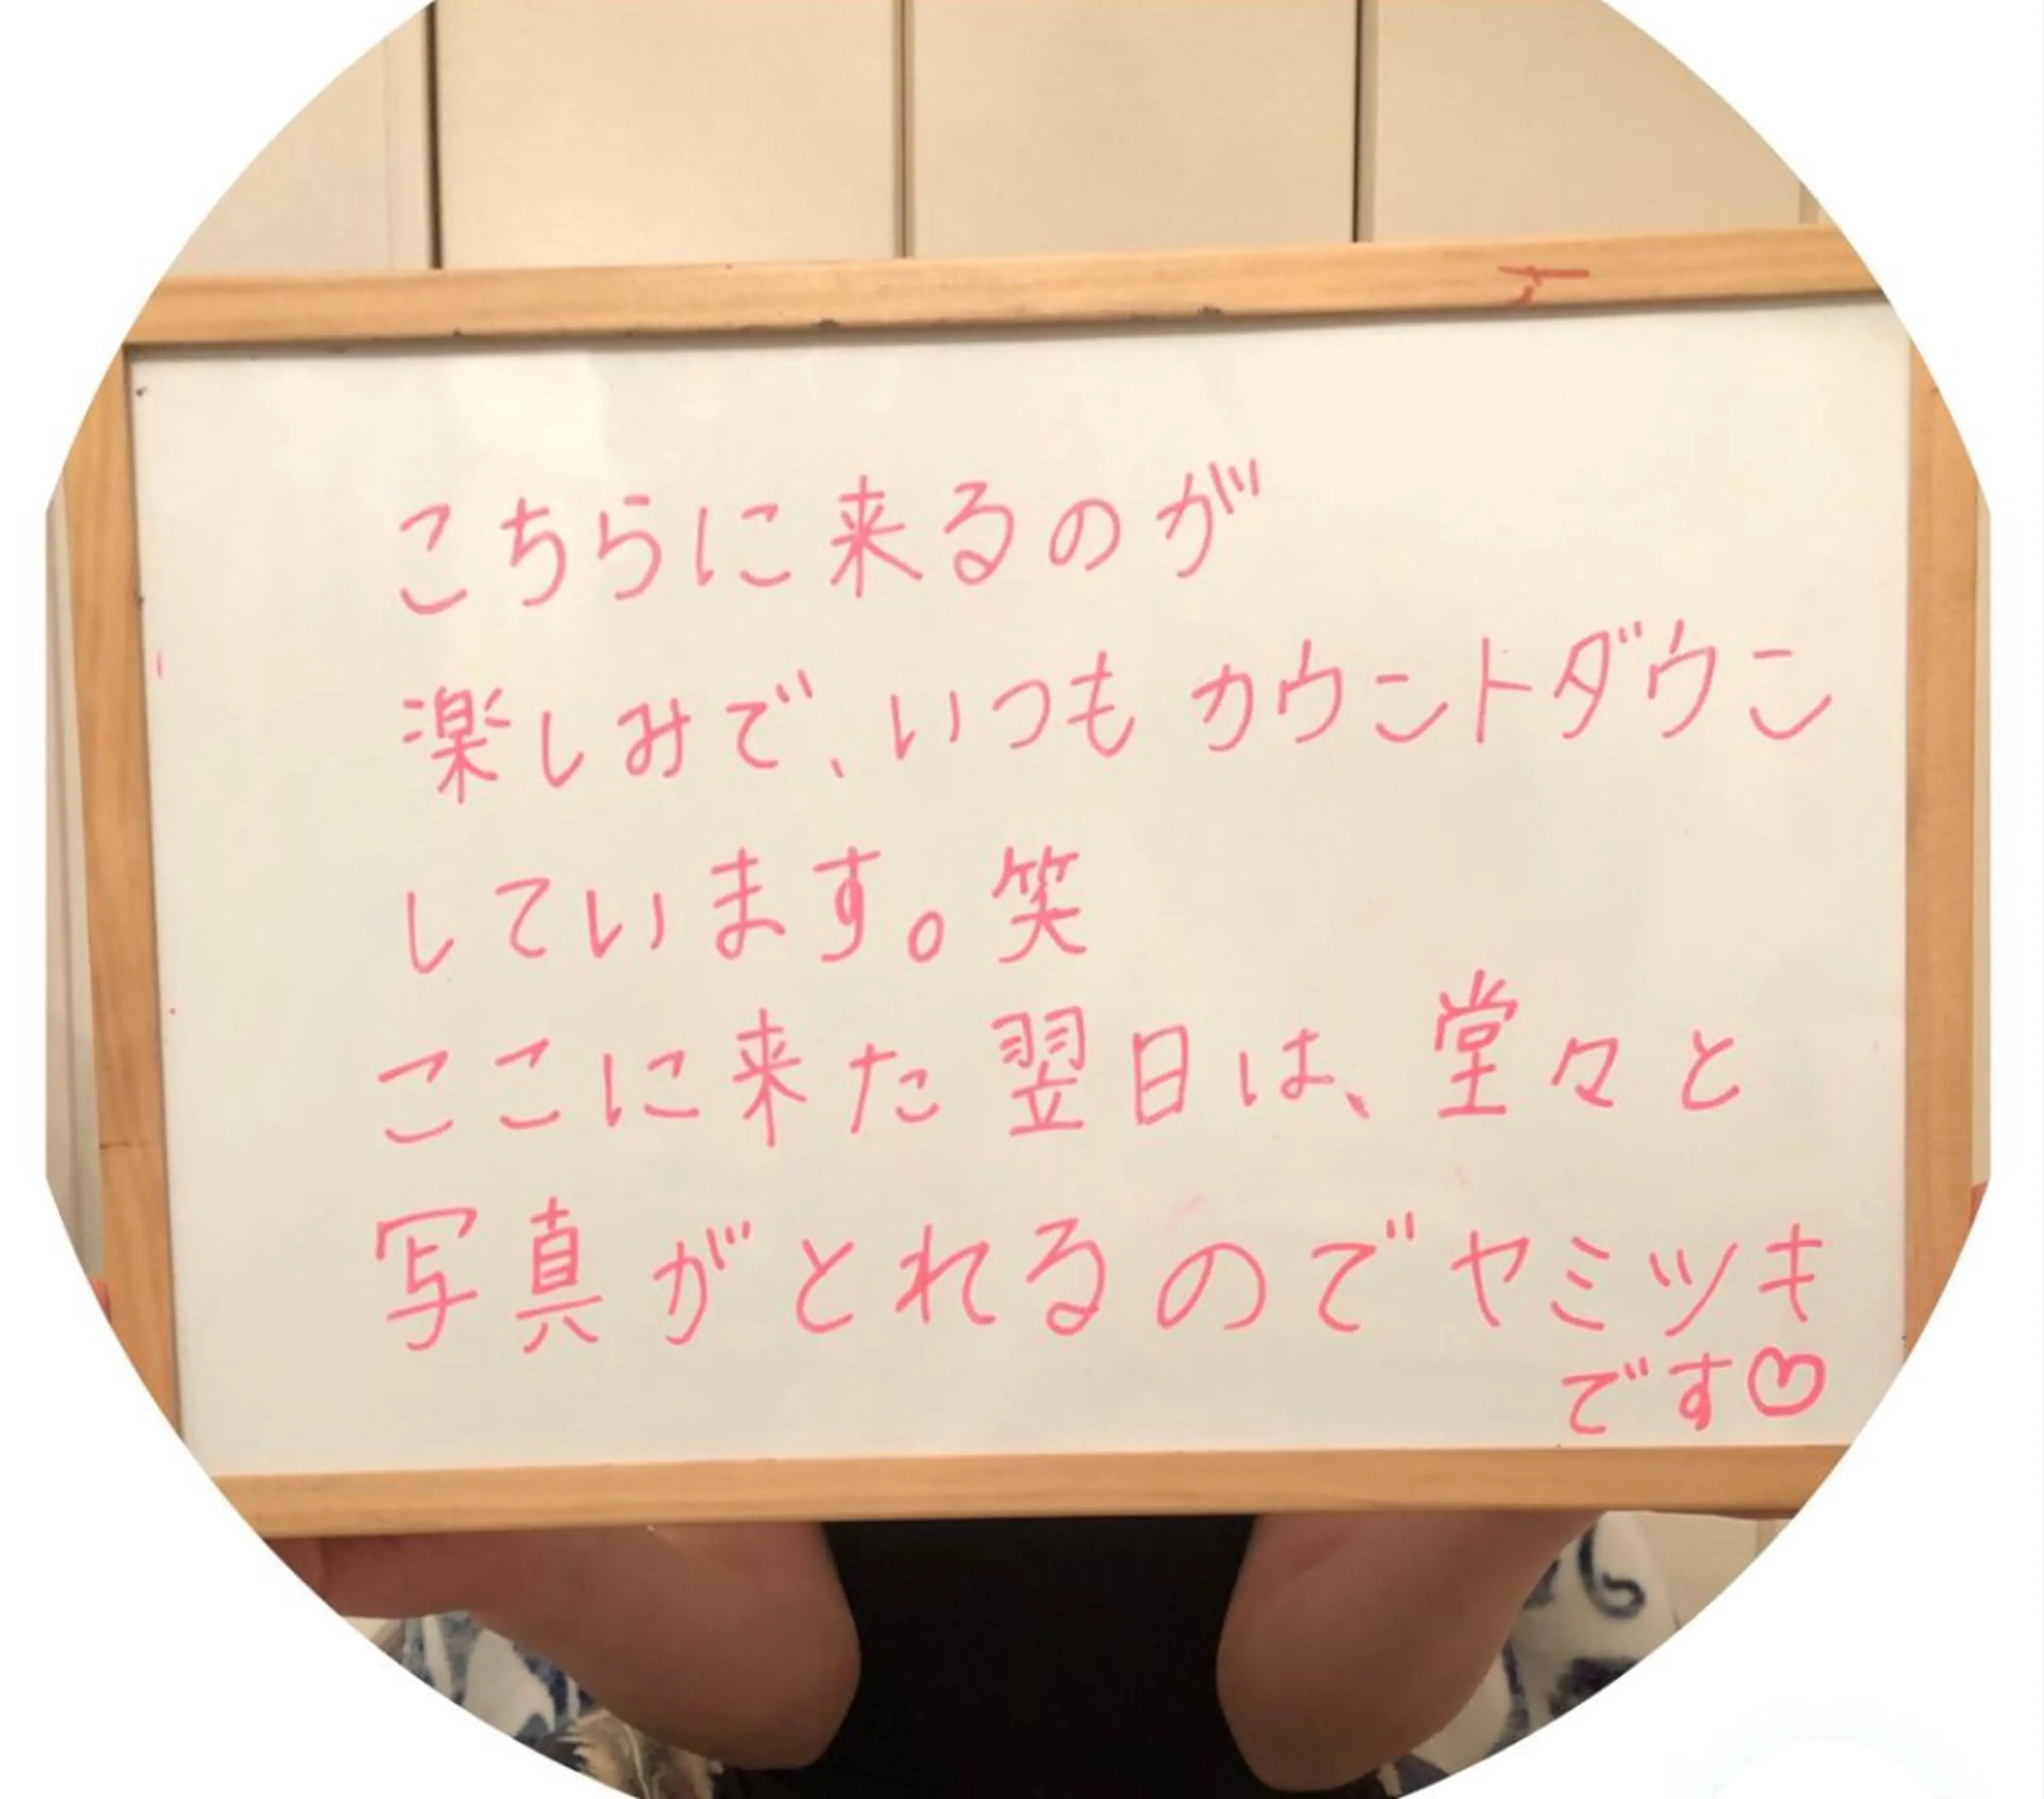 こちらに来るのが
楽しみで、いつもカウントダウン
しています。笑
ここに来た翌日は、堂々と
写真がとれるのでヤミツキ
です♡